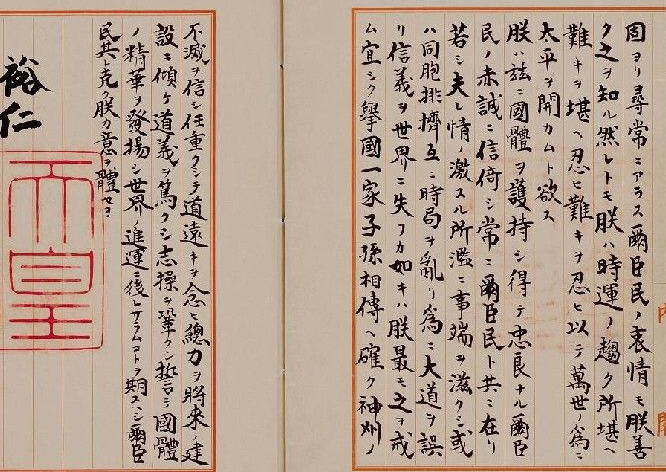 固ヨリ尋常ニアラス爾臣民ノ衷情モ朕善
ク之ヲ知ル然レトモ朕ハ時運ノ趨ク所堪ヘ
難キヲ堪ヘ忍ヒ難キヲ忍ヒ以テ萬世ノ爲ニ
太平ヲ開カムト欲ス
朕ハ茲ニ國體ヲ護持シ得テ忠良ナル爾臣
民ノ赤誠ニ信倚シ常ニ爾臣民ト共ニ在リ
若シ夫レ情ノ激スル所濫ニ事端ヲ滋クシ或
ハ同胞排擠互ニ時局ヲ亂リ爲ニ大道ヲ誤
リ信義ヲ世界ニ失フカ如キハ朕最モ之ヲ戒
ム宜シク擧國一家子孫相傳ヘ確ク神州ノ
不滅ヲ信シ任重クシテ道遠キヲ念ヒ總力ヲ將來ノ建
設ニ傾ケ道義ヲ篤クシ志操ヲ鞏クシ誓テ國體
ノ精華ヲ發揚シ世界ノ進運ニ後レサラムコトヲ期スヘシ爾臣
民其レ克ク朕カ意ヲ體セヨ
裕仁
天皇